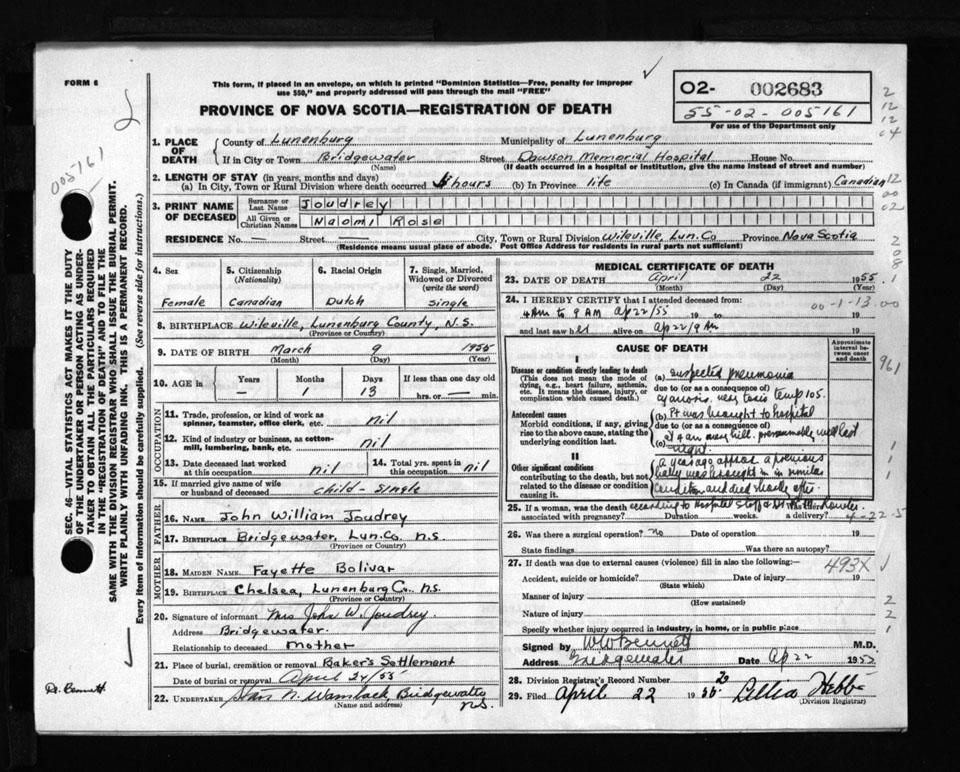 FORM 6
This form, if placed in an envelope, on which is printed "Dominion Statistics—Free, penalty for improper
use $50," and properly addressed will pass through the mail "FREE"
PROVINCE OF NOVA SCOTIA—REGISTRATION OF DEATH
O2- 002683
55-02-005161
For use of the Department only
005161
SEC. 46—VITAL STATISTICS ACT MAKES IT THE DUTY
OF THE UNDERTAKER OR PERSON ACTING AS UNDER-
TAKER TO OBTAIN ALL THE PARTICULARS REQUIRED
IN THE "REGISTRATION OF DEATH" AND TO FILE THE
SAME WITH THE DIVISION REGISTRAR WHO SHALL ISSUE THE BURIAL PERMIT.
WRITE PLAINLY WITH UNFADING INK. THIS IS A PERMANENT RECORD.
Every item of information should be carefully supplied. (See reverse side for instructions.)
1. PLACE OF DEATH
County of Lunenburg Municipality of Lunenburg
If in City or Town Bridgewater Street Dawson Memorial Hospital House No.
(Name) (If death occurred in a hospital or institution, give name instead of street and number)
2. LENGTH OF STAY (in years, months and days)
(a) In City, Town or Rural Division where death occurred hours (b) In Province life (c) In Canada (if immigrant) Canadian
3. PRINT NAME OF DECEASED
Surname or Last Name Joudrey
All Given or Christian Names Naomi Rose
RESIDENCE No. — Street — City, Town or Rural Division Wileville, Lun. Co Province Nova Scotia
(Residence means usual place of abode. Post Office Address for residents in rural parts not sufficient)
4. Sex Female
5. Citizenship (Nationality) Canadian
6. Racial Origin Dutch
7. Single, Married, Widowed or Divorced (write the word) Single
8. BIRTHPLACE Wileville, Lunenburg County, N.S.
(Province or Country)
9. DATE OF BIRTH March 9 1955
(Month) (Day) (Year)
10. AGE in Years — Months 1 Days 13 If less than one day old hrs. or — min.
OCCUPATION
11. Trade, profession, or kind of work as spinner, teamster, office clerk, etc. nil
12. Kind of industry or business, as cotton-mill, lumbering, bank, etc. nil
13. Date deceased last worked at this occupation nil
14. Total yrs. spent in this occupation nil
15. If married give name of wife or husband of deceased child - single
FATHER
16. NAME John William Joudrey
17. BIRTHPLACE Bridgewater, Lun. Co. N.S
(Province or Country)
MOTHER
18. MAIDEN NAME Fayette Bolivar
19. BIRTHPLACE Chelsea, Lunenburg Co. N.S.
(Province or Country)
20. Signature of informant Mrs John W. Joudrey
Address Bridgewater.
Relationship to deceased Mother
21. Place of burial, cremation or removal Baker's Settlement
Date of burial or removal April 24/55
22. UNDERTAKER N. Wamback Bridgewater
N.S.
(Name and address)
Dr. Bennett
MEDICAL CERTIFICATE OF DEATH
23. DATE OF DEATH April 22 1955
(Month) (Day) (Year)
24. I HEREBY CERTIFY that I attended deceased from:
4 AM to 9 AM Ap 22/55 19 to 19
00-1-13.00
and last saw her alive on Ap 22/9 AM 19
CAUSE OF DEATH
Approximate interval between onset and death
I
Disease or condition directly leading to death
(This does not mean the mode of dying, e.g., heart failure, asthenia, etc. It means the disease, injury, or complication which caused death.)
(a) suspected pneumonia
due to (or as a consequence of)
cyanosis. very toxic temp 105.
Antecedent causes
Morbid conditions, if any, giving rise to the above cause, stating the underlying condition last.
(b) Pt was brought to hospital
due to (or as a consequence of)
at 4 am very ill. presumably well last
(c) night.
II
Other significant conditions
contributing to the death, but not related to the disease or condition causing it.
a year ago approx a previous
baby was brought in in similar
condition and died shortly after
according to Hospital Staff
25. If a woman, was the death associated with pregnancy? Duration weeks. a delivery?
4-22-5
26. Was there a surgical operation? no Date of operation 19
State findings Was there an autopsy?
27. If death was due to external causes (violence) fill in also the following:—
493X
Accident, suicide or homicide? Date of injury 19
(State which)
Manner of injury
(How sustained)
Nature of injury
Specify whether injury occurred in industry, in home, or in public place
Signed by W W Bennett M.D.
Address Bridgewater Date Ap 22 1955
28. Division Registrar's Record Number 26
29. Filed April 22 1955 Lellia Hebb
(Division Registrar)
2
12
12
04
12
00
02
208
1
961
1
1
1
1
2
2
1